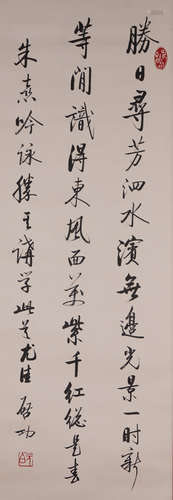 勝日尋芳泗水濱無邊光景一时新
等閒識得東風面萬紫千紅總是春
朱熹吟詠勝其講学此其尤佳 啓功